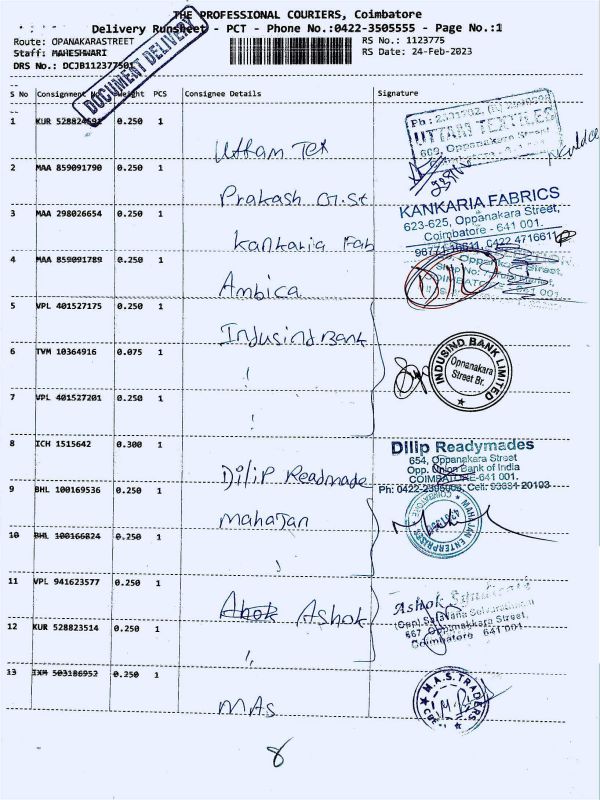 THE PROFESSIONAL COURIERS, Coimbatore
Delivery Runsheet - PCT - Phone No.:0422-3505555 - Page No.:1
Route: OPANAKARASTREET
RS No.: 1123775
Staff: MAHESHWARI
RS Date: 24-Feb-2023
DRS No.: DCJB112377501
DOCUMENT DELIVERY
S No Consignment No Weight PCS Consignee Details Signature
1 KUR 528824591 0.250 1 Uttam Tex
UTTAM TEXTILES
609, Oppanakara Street
2 MAA 859091790 0.250 1 Prakash
3 MAA 298026654 0.250 1 Kankaria Fab
KANKARIA FABRICS
623-625, Oppanakara Street,
Coimbatore - 641 001.
4 MAA 859091789 0.250 1 Ambica
5 VPL 401527175 0.250 1 Indusind Bank
6 TVM 10364916 0.075 1 "
INDUSIND BANK LIMITED
Opnanakara
Street Br.
7 VPL 401527201 0.250 1 "
8 ICH 1515642 0.300 1 Dilip Readmade
Dilip Readymades
654, Oppanakara Street
Opp. Union Bank of India
COIMBATORE-641 001.
9 BHL 100169536 0.250 1 Mahajan
MAHAJAN ENTERPRISES
COIMBATORE
10 BHL 100166824 0.250 1 "
11 VPL 941623577 0.250 1 Ashok Ashok
Ashok Syndicate
667 Oppanakkara Street,
Coimbatore 641 001
12 KUR 528823514 0.250 1 "
13 IXM 503186952 0.250 1 MAS
M.A.S. TRADERS
8